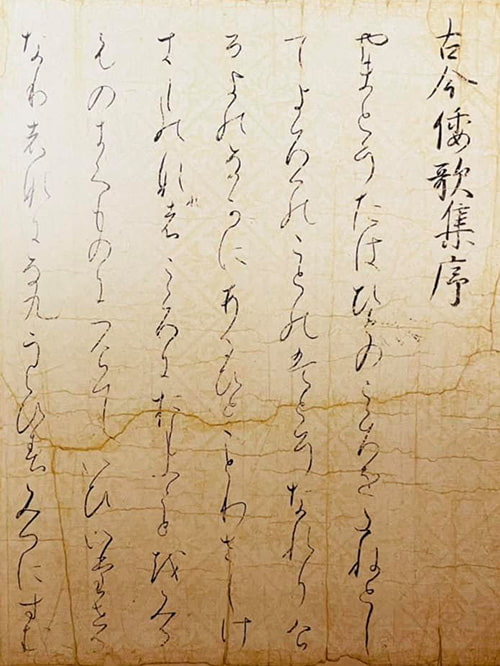 古今倭歌集序
やまとうたはひとのこゝろをたねとし
てよろつのことのはとそなれりけ
るよのなかにあるひとことわさしけ
きものなれはこゝろにおもふことをみる
ものきくものにつけていひいたせる
なりはなになくうくひすみつにすむ